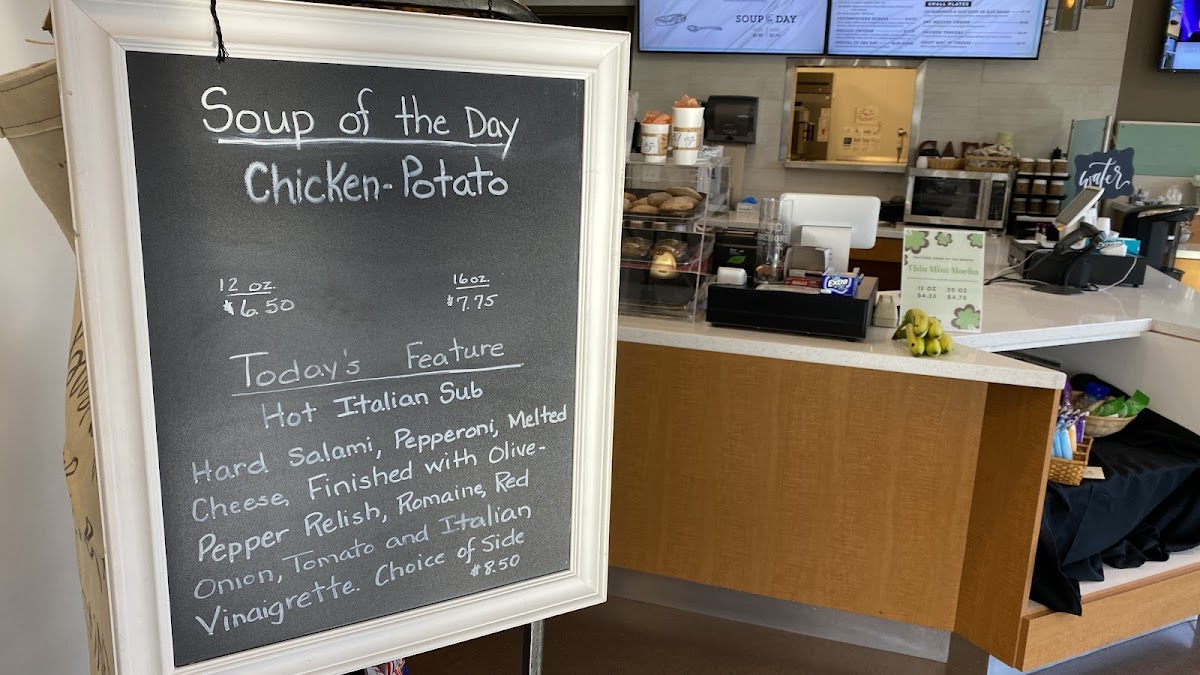 Soup of the Day
Chicken-Potato
12 oz.
$6.50
16 oz.
$7.75
Today's Feature
Hot Italian Sub
Hard Salami, Pepperoni, Melted
Cheese, Finished with Olive-
Pepper Relish, Romaine, Red
Onion, Tomato and Italian
Vinaigrette. Choice of Side
$8.50
SOUP OF THE DAY
SMALL PLATES
water
Thin Mint Mocha
12 OZ
20 OZ
$4.25
$4.75
Extra